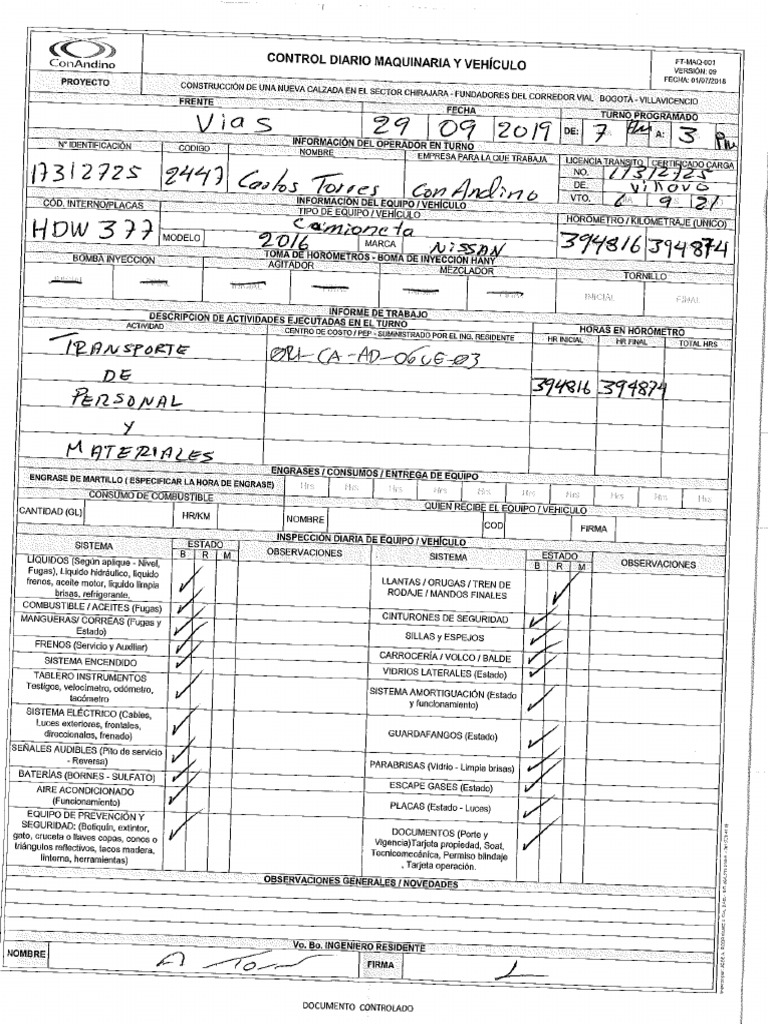 ConAndino
CONTROL DIARIO MAQUINARIA Y VEHÍCULO
FT-MAQ-001
VERSIÓN: 09
FECHA: 01/07/2018
PROYECTO
CONSTRUCCIÓN DE UNA NUEVA CALZADA EN EL SECTOR CHIRAJARA - FUNDADORES DEL CORREDOR VIAL BOGOTÁ - VILLAVICENCIO
FRENTE FECHA TURNO PROGRAMADO
Vias 29 09 2019 DE: 7 AM A: 3 PM
INFORMACIÓN DEL OPERADOR EN TURNO
N° IDENTIFICACIÓN CODIGO NOMBRE EMPRESA PARA LA QUE TRABAJA LICENCIA TRANSITO CERTIFICADO CARGA
17312725 2447 Carlos Torres ConAndino
NO. 17312725
DE. Vinovo
VTO. 6 9 21
INFORMACIÓN DEL EQUIPO / VEHÍCULO
COD. INTERNO/PLACAS TIPO DE EQUIPO / VEHÍCULO HOROMETRO / KILOMETRAJE (UNICO)
HDW 377 Camioneta 394816 394874
MODELO 2016 MARCA NISSAN
TOMA DE HOROMETROS - BOMA DE INYECCIÓN HANY
BOMBA INYECCION AGITADOR MEZCLADOR TORNILLO
INICIAL FINAL
INFORME DE TRABAJO
DESCRIPCION DE ACTIVIDADES EJECUTADAS EN EL TURNO HORAS EN HOROMETRO
ACTIVIDAD CENTRO DE COSTO / PEP - SUMINISTRADO POR EL ING. RESIDENTE HR INICIAL HR FINAL TOTAL HRS
TRANSPORTE
DE 394816 394874
PERSONAL
Y
MATERIALES
ENGRASES / CONSUMOS / ENTREGA DE EQUIPO
ENGRASE DE MARTILLO ( ESPECIFICAR LA HORA DE ENGRASE) Hrs Hrs Hrs Hrs Hrs Hrs Hrs Hrs Hrs Hrs
CONSUMO DE COMBUSTIBLE QUIEN RECIBE EL EQUIPO / VEHICULO
CANTIDAD (GL) HR/KM NOMBRE COD FIRMA
INSPECCIÓN DIARIA DE EQUIPO / VEHÍCULO
SISTEMA ESTADO OBSERVACIONES SISTEMA ESTADO OBSERVACIONES
B R M B R M
LIQUIDOS (Según aplique - Nivel, Fugas), Liquido hidráulico, liquido frenos, aceite motor, liquido limpia brisas, refrigerante. ✓
COMBUSTIBLE / ACEITES (Fugas) ✓
MANGUERAS/ CORREAS (Fugas y Estado) ✓
FRENOS (Servicio y Auxiliar) ✓
SISTEMA ENCENDIDO ✓
TABLERO INSTRUMENTOS Testigos, velocimetro, odómetro, tacómetro ✓
SISTEMA ELÉCTRICO (Cables, Luces exteriores, frontales, direccionales, frenado) ✓
SEÑALES AUDIBLES (Pito de servicio - Reversa) ✓
BATERÍAS (BORNES - SULFATO) ✓
AIRE ACONDICIONADO (Funcionamiento) ✓
EQUIPO DE PREVENCIÓN Y SEGURIDAD: (Botiquín, extintor, gato, cruceta o llaves copas, conos o triángulos reflectivos, tacos madera, linterna, herramientas) ✓
LLANTAS / ORUGAS / TREN DE RODAJE / MANDOS FINALES ✓
CINTURONES DE SEGURIDAD ✓
SILLAS y ESPEJOS ✓
CARROCERÍA / VOLCO / BALDE ✓
VIDRIOS LATERALES (Estado) ✓
SISTEMA AMORTIGUACIÓN (Estado y funcionamiento) ✓
GUARDAFANGOS (Estado) ✓
PARABRISAS (Vidrio - Limpia brisas) ✓
ESCAPE GASES (Estado) ✓
PLACAS (Estado - Luces) ✓
DOCUMENTOS (Porte y Vigencia)Tarjeta propiedad, Soat, Tecnicomecánica, Permiso blindaje , Tarjeta operación. ✓
OBSERVACIONES GENERALES / NOVEDADES
Vo. Bo. INGENIERO RESIDENTE
NOMBRE FIRMA
DOCUMENTO CONTROLADO